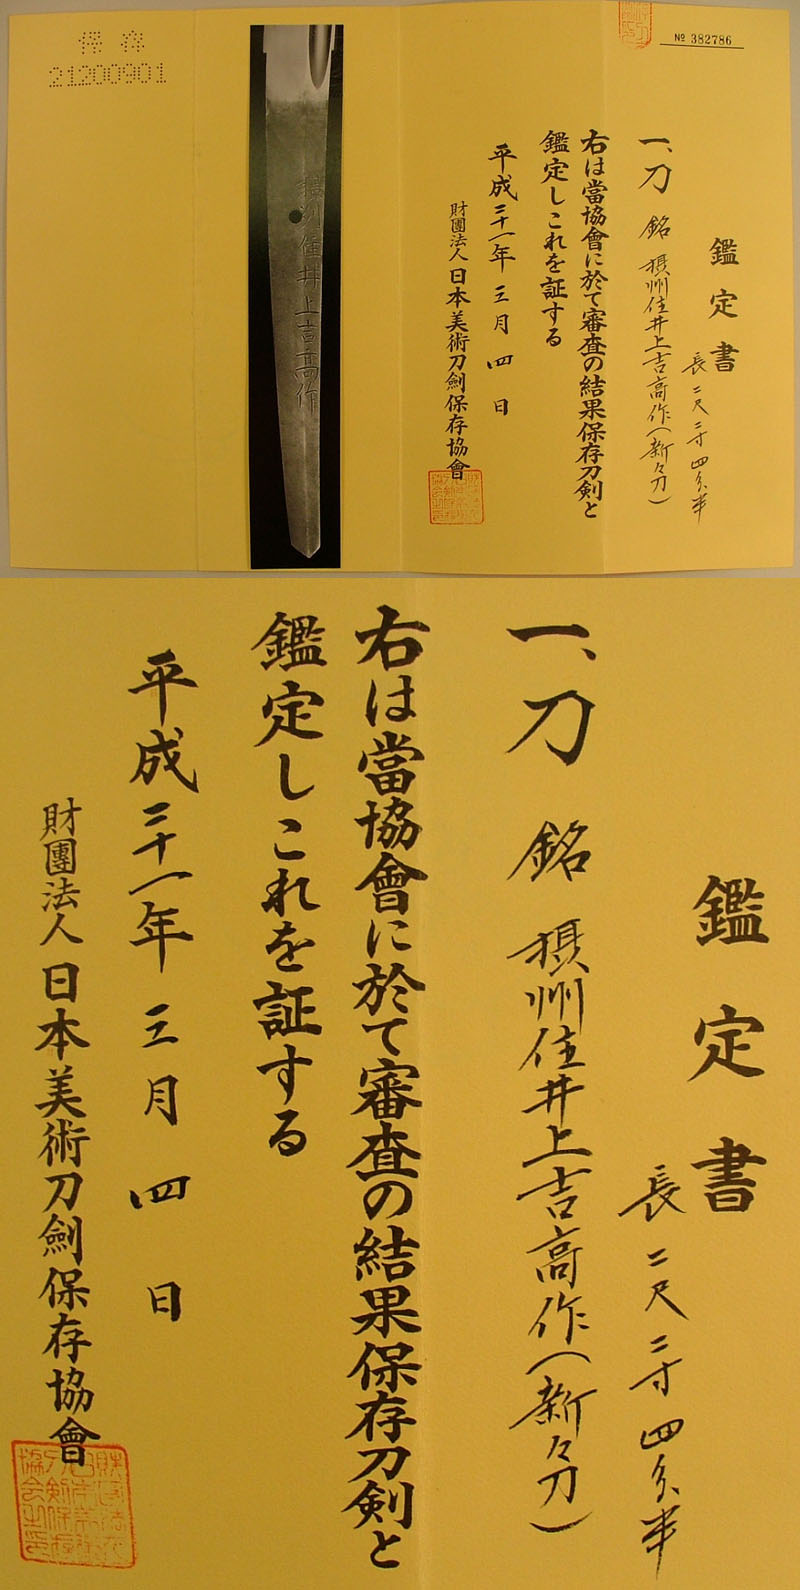 保存
21200901
№ 382786
鑑定書
長二尺二寸四分半
一、刀 銘 摂州住井上吉高作(新々刀)
右は當協會に於て審査の結果保存刀剣と
鑑定しこれを証する
平成二十一年 三月 四日
財團法人日本美術刀劍保存協會
摂州住井上吉高作
鑑定書
長二尺二寸四分半
一、刀 銘 摂州住井上吉高作(新々刀)
右は當協會に於て審査の結果保存刀剣と
鑑定しこれを証する
平成二十一年 三月 四日
財團法人日本美術刀劍保存協會